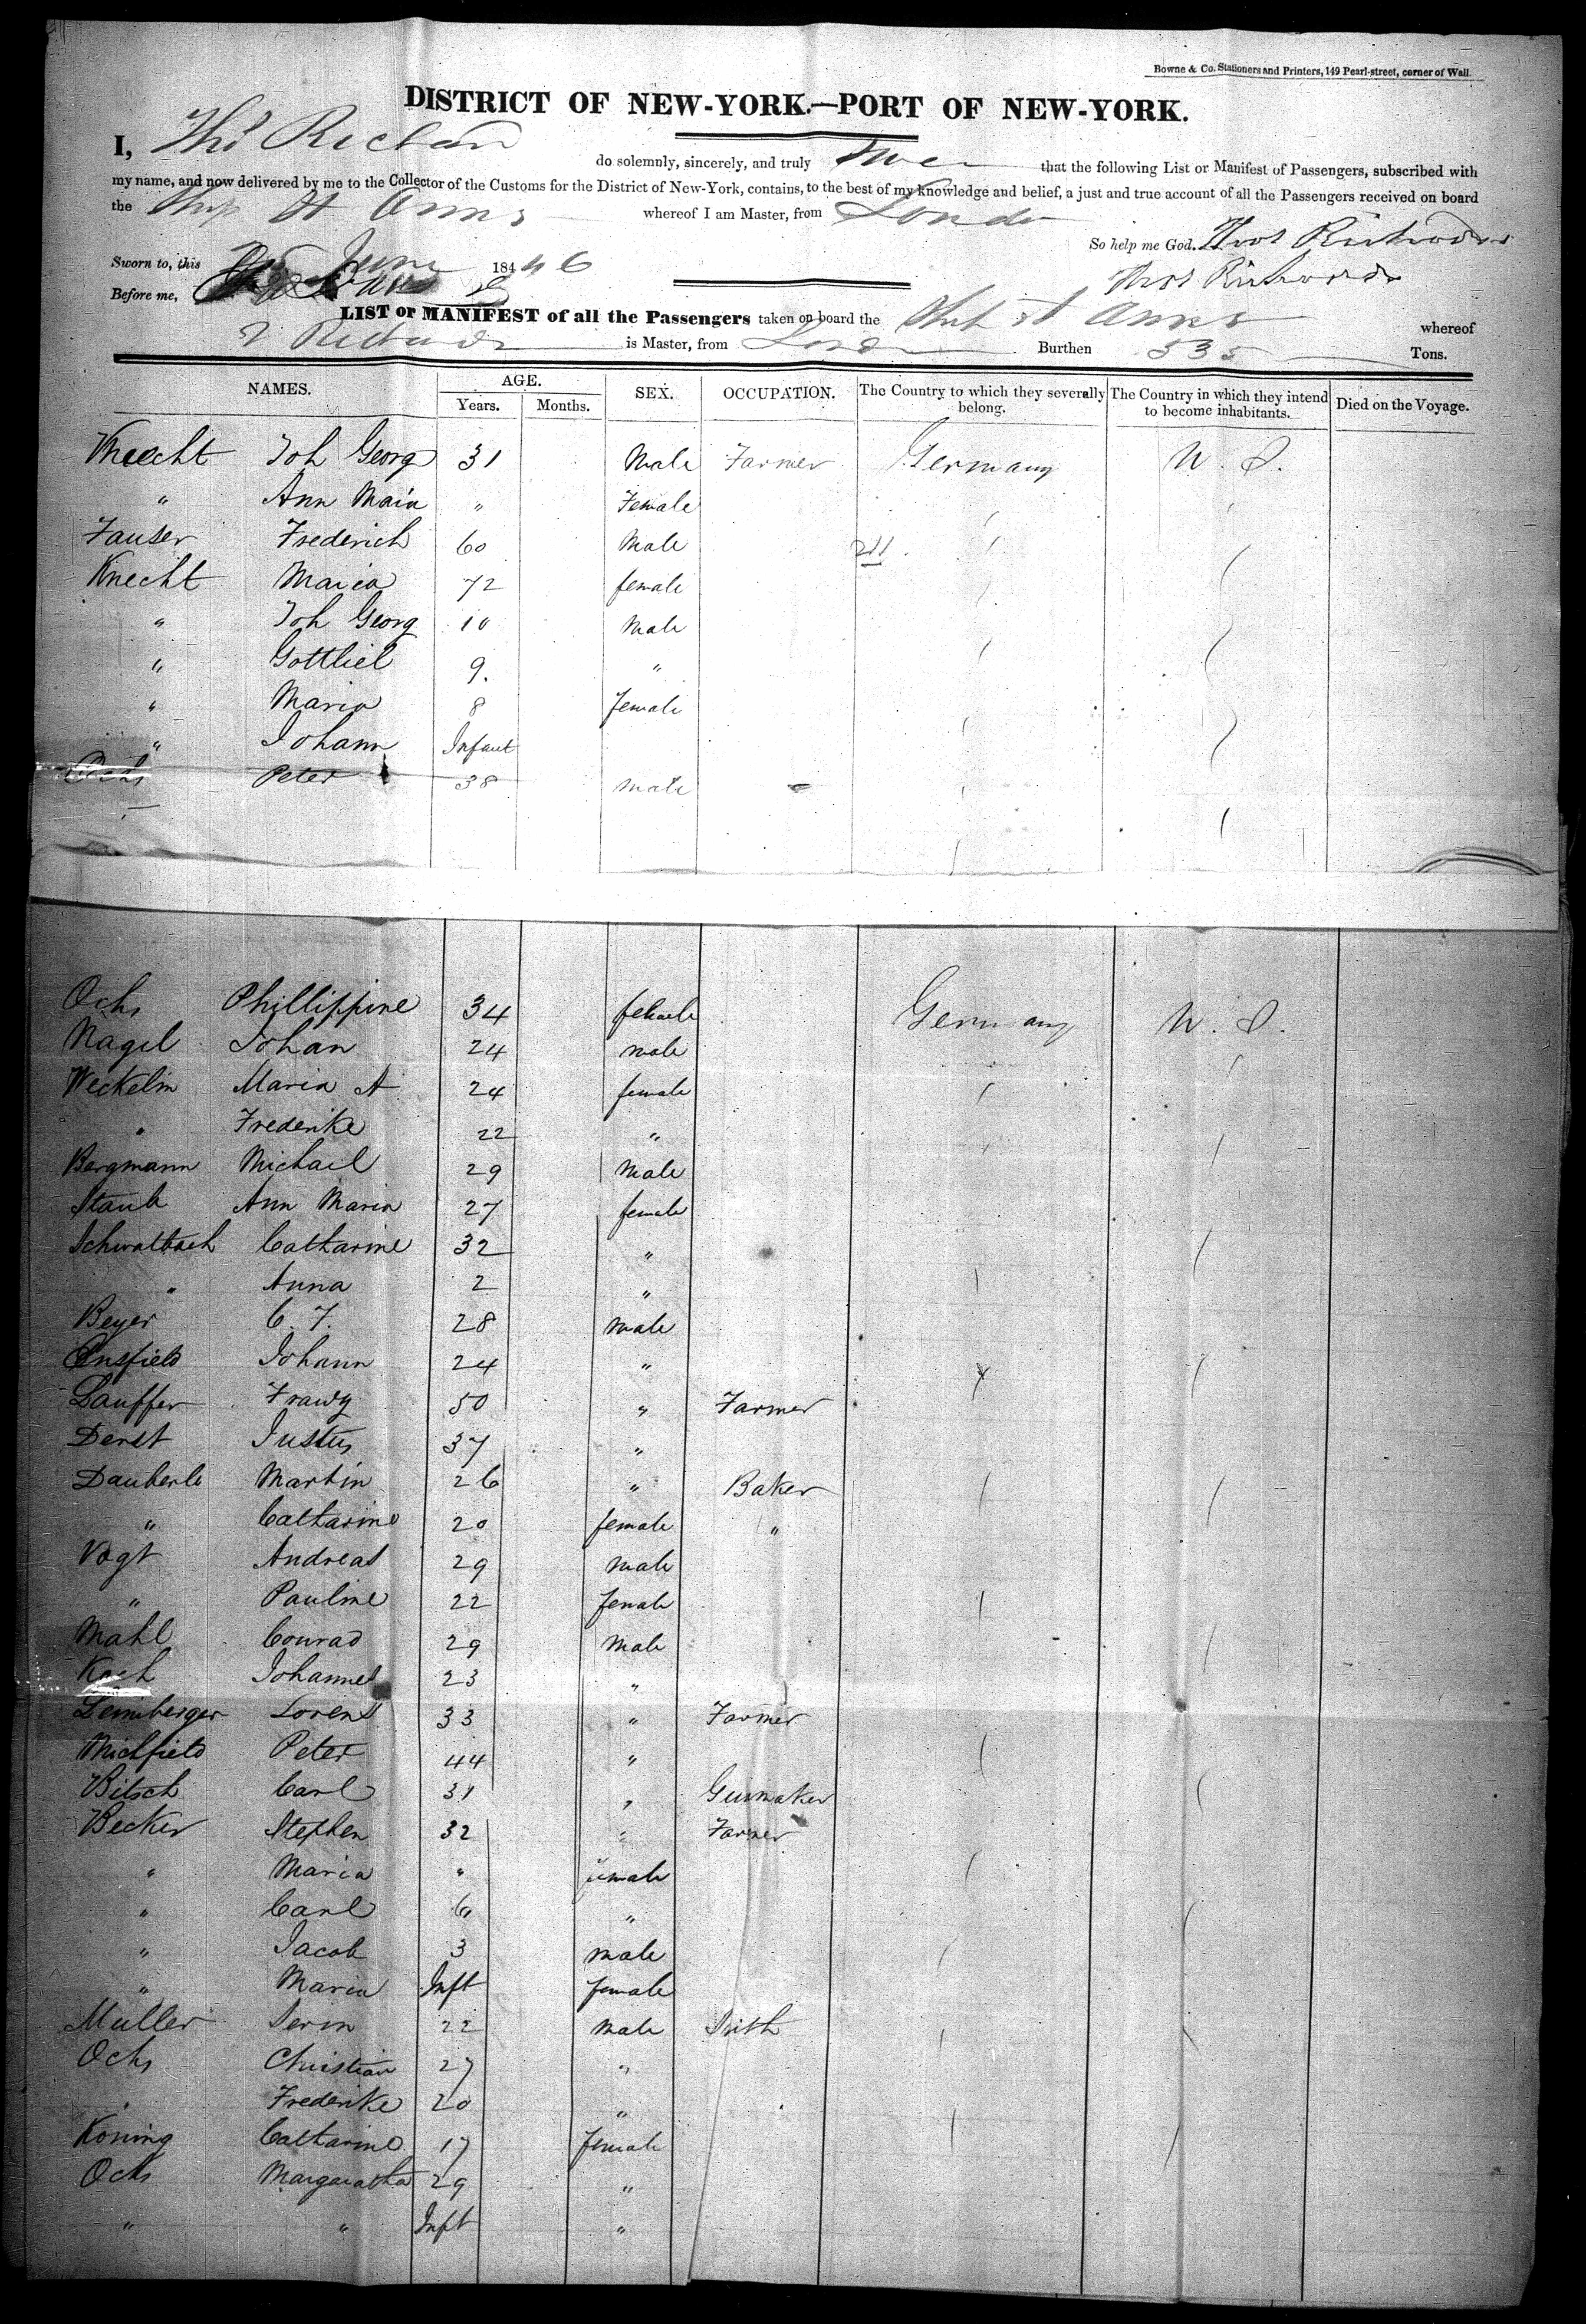 Bowne & Co. Stationers and Printers, 149 Pearl-street, corner of Wall.
DISTRICT OF NEW-YORK.—PORT OF NEW-YORK.
I, Thos do solemnly, sincerely, and truly that the following List or Manifest of Passengers, subscribed with
my name, and now delivered by me to the Collector of the Customs for the District of New-York, contains, to the best of my knowledge and belief, a just and true account of all the Passengers received on board
the Ship St Anns whereof I am Master, from London
So help me God. Thos Richards
Sworn to, this June 184 46
Thos Richards
Before me,
LIST or MANIFEST of all the Passengers taken on board the Ship St Anns whereof
T Richards is Master, from London Burthen 535 Tons.
NAMES. AGE. SEX. OCCUPATION. The Country to which they severally belong. The Country in which they intend to become inhabitants. Died on the Voyage.
Years. Months.
Knecht Joh Georg 31 Male Farmer Germany U. S.
" Ann Maria " Female
Fauser Frederich 60 Male 211
Knecht Maria 72 female
" Joh Georg 10 Male
" Gottlieb 9. "
" Maria 8 female
" Johann Infant
Ochs Peter 38 male
Ochs Phillippine 34 female Germany U. S.
Nagel Johan 24 male
Weckelin Maria A 24 female
" Frederike 22 "
Bergmann Michael 29 Male
Staub Ann Maria 27 female
Schwalbach Catharine 32 "
" Anna 2 "
Beyer C. F. 28 male
Ensfield Johann 24 "
Lauffer Franz 50 " Farmer
Derst Justus 37 "
Dauberle Martin 26 " Baker
" Catharine 20 female "
Vogt Andreas 29 male
" Pauline 22 female
Mahl Conrad 29 Male
Koch Johannes 23 "
Lemberger Lorenz 33 " Farmer
Michfield Peter 44 "
Bitsch Carl 31 " Gunmaker
Becker Stephen 32 " Farmer
" Maria " female
" Carl 6 "
" Jacob 3 male
" Maria Inft female
Muller 22 Male Smith
Ochs Christian 27 "
" Frederike 20 "
Koning Catharine 17 female
Ochs Margaratha 29 "
" " Inft "